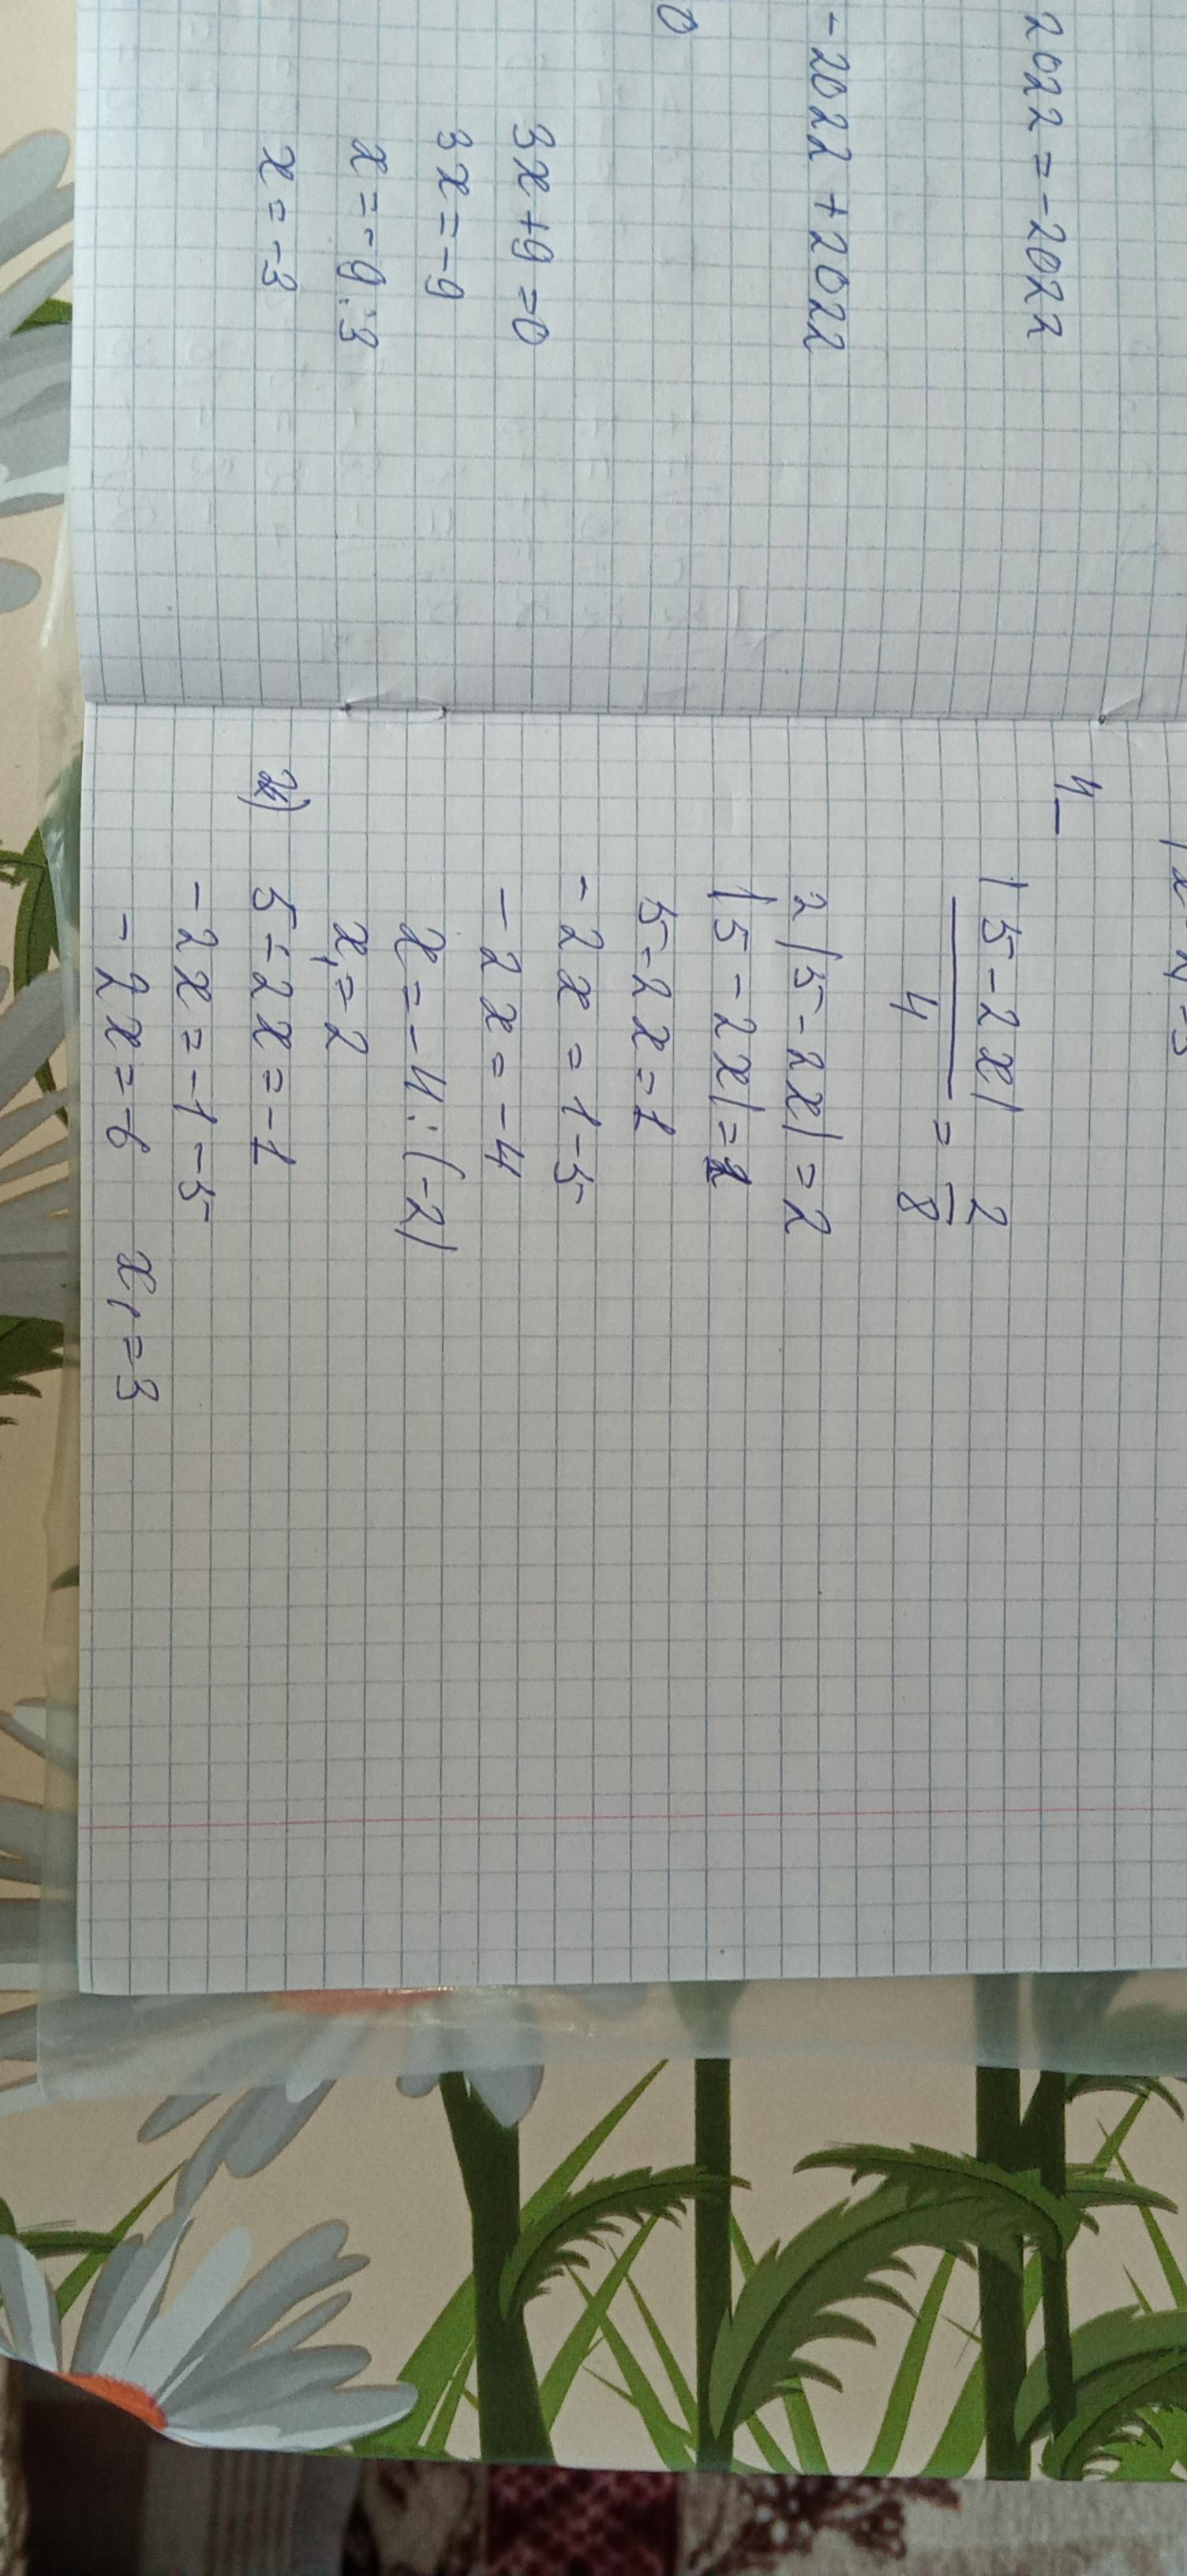 2022 = -2022
- 2022 + 2022
0
3x + 9 = 0
3x = -9
x = -9 : 3
x = -3
4_
|5 - 2x| / 4 = 2 / 8
2|5 - 2x| = 2
|5 - 2x| = 1
5 - 2x = 1
- 2x = 1 - 5
- 2x = -4
x = -4 : (-2)
x₁ = 2
2) 5 - 2x = -1
- 2x = -1 - 5
- 2x = -6 x₁ = 3